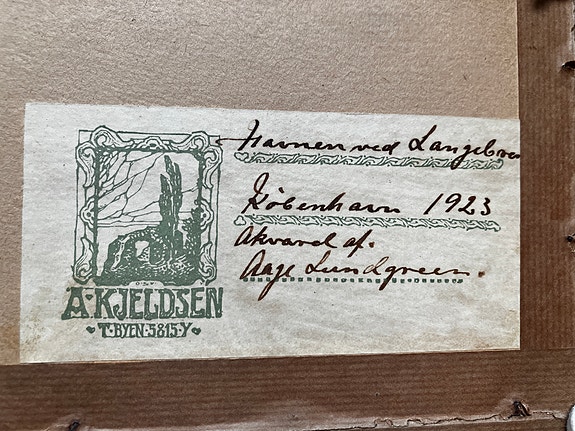 Havnen ved Langebro
København 1923
Akvarel af.
Aage Lundgreen.
A·KJELDSEN
T·BYEN·5815·Y